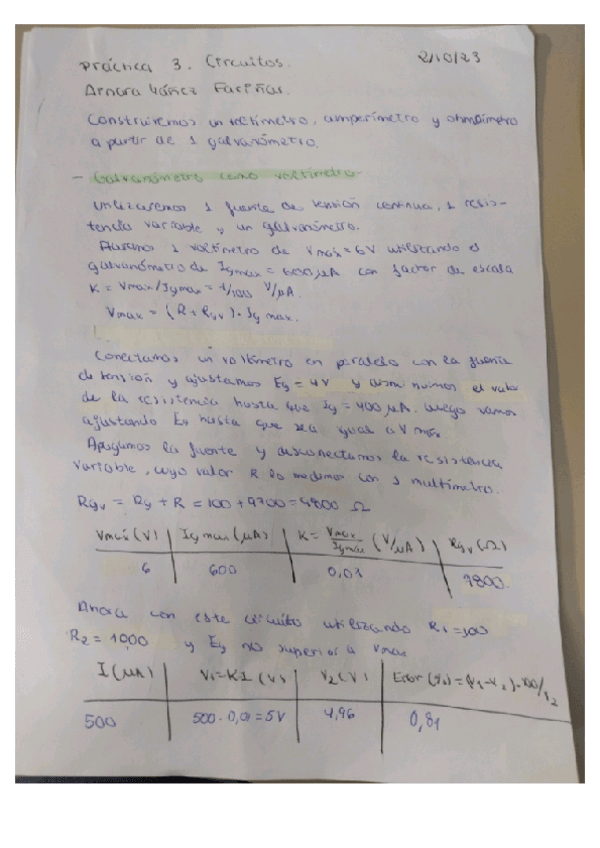 Práctica 3. Circuitos. 2/10/23
Ainara Yáñez Fariñas.
Construiremos un voltímetro, amperímetro y ohmímetro
a partir de 1 galvanómetro.
- Galvanómetro como voltímetro
Utilizaremos 1 fuente de tensión continua, 1 resis-
tencia variable y un galvanómetro.
1 voltímetro de Vmáx = 6V utilizando el
galvanómetro de Igmax = 600 μA con factor de escala
K = Vmáx/Igmax = 1/100 V/μA.
Vmax = (R + Rgv) · Ig max.
Conectamos un voltímetro en paralelo con la fuente
de tensión y ajustamos Eg = 4V y el valor
de la resistencia hasta que Ig = 400 μA. Luego vamos
ajustando Eg hasta que sea igual a Vmáx
Apagamos la fuente y desconectamos la resistencia
variable, cuyo valor R lo medimos con 1 multímetro.
Rgv = Rg + R = 100 + 9700 = 9800 Ω
Vmáx (V) | Igmax (μA) | K = Vmax/Igmáx (V/μA) | Rgv (Ω)
6 | 600 | 0,01 | 9800
Ahora con este circuito utilizando R1 = 100
R2 = 1000 y Eg no superior a Vmax
I (μA) | V1 = KI (V) | V2 (V) | Error (%) = (V1 - V2) · 100/V2
500 | 500 · 0,01 = 5V | 4,96 | 0,81